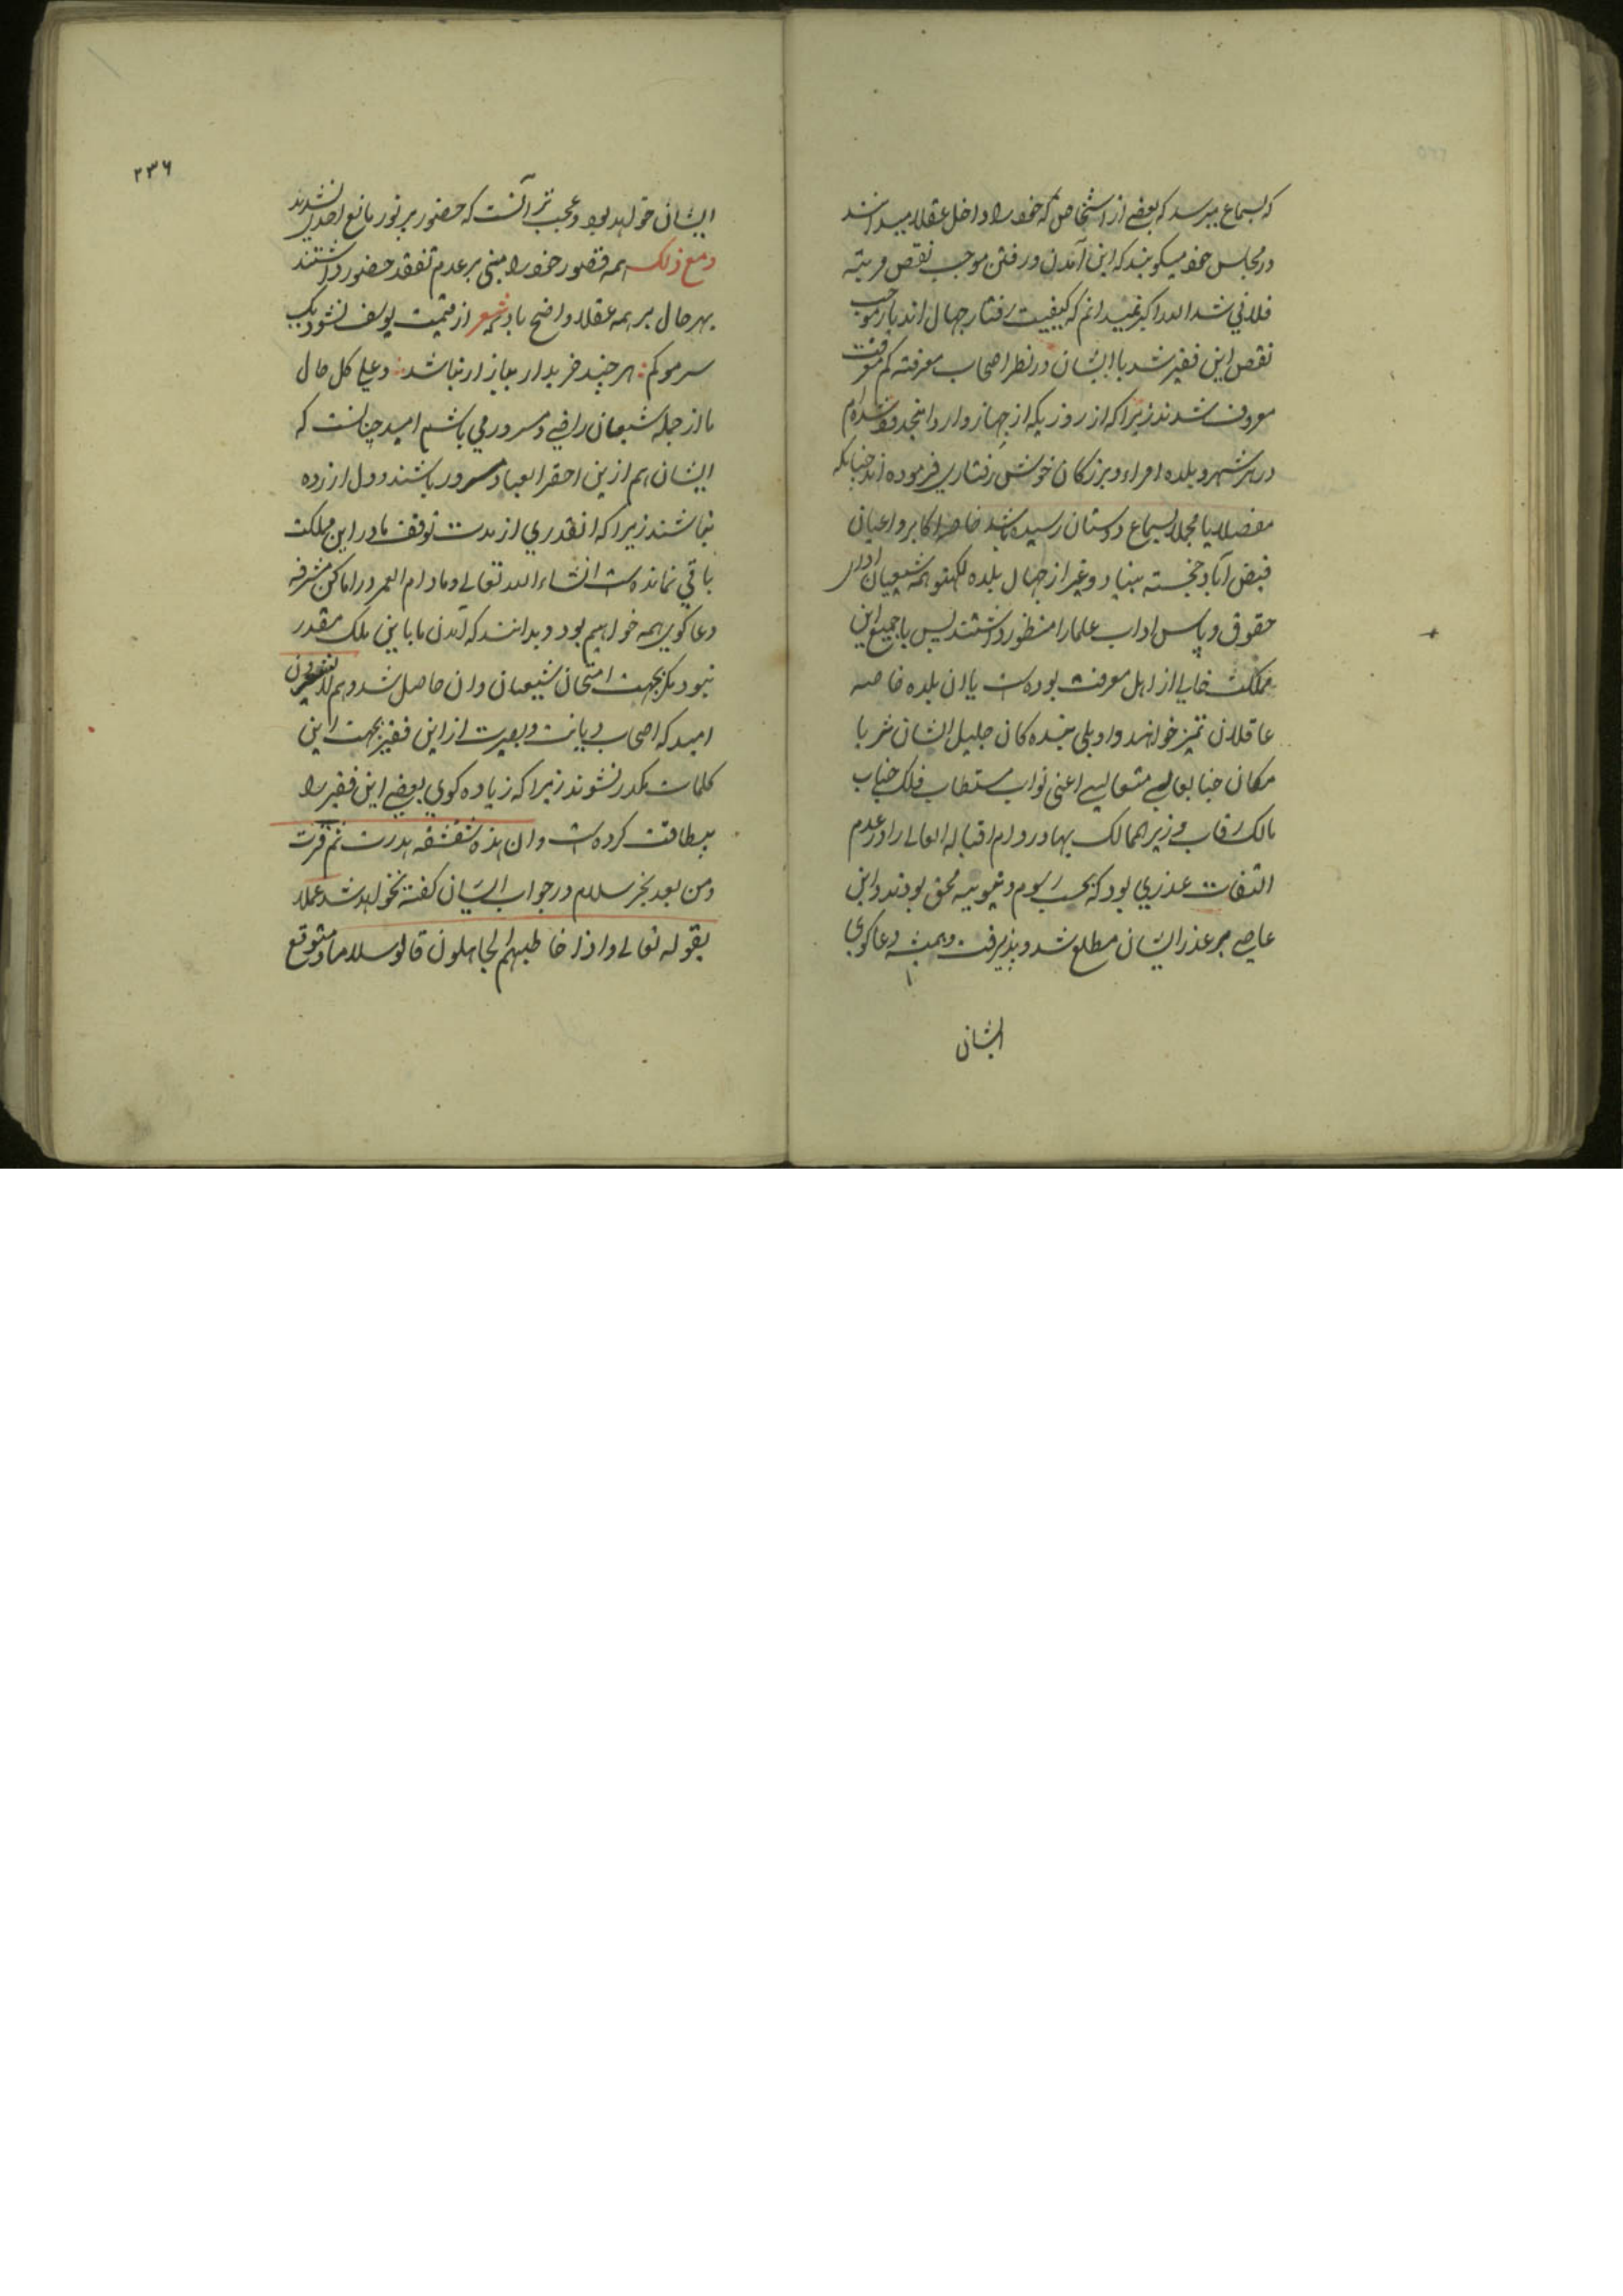 که بسماع میرسد که بعضے از اشخاص که خود را داخل عقلا میدانند
در مجالس خود میکویند که این آمدن و رفتن موجب نقص مرتبه
فلانی شد الله اکبر نمیدانم که کیفیت رفتار جهال اند یار موجب
نقص این فقیر شد یا ایشان در نظر اصحاب معرفته کم معرفت
معروف شدند زیرا که از روزیکه از جهاز وارد اینحدود شده‌ام
در هر شهر و بلده امراء و بزرکان خوش رفتاری فرموده‌اند چنانکه
مفصلا یا مجملا بسماع دوستان رسیده باشد خاصه اکابر و اعیان
فیض آباد خجسته بنیاد و غیر از جهال بلده لکهنو همه شیعیان ادای
حقوق و پاس اداب علما را منظور داشتند پس یا جمیع این
مملکت خالی از اهل معرفت بوده‌ست یا ان بلده خاصه
عاقلان تمیز خواهند داد بلی بنده کان جلیل الشان ثریا
مکان جنابعالی متعالیے اعنی نواب مستطاب فلک جناب
مالک رقاب وزیر الممالک بهادر دام اقباله العالے را در عدم
التفات عذری بود که بحسب رسوم دنیویه محق بودند و این
عاصے بر عذر ایشان مطلع شد و پذیرفت و همیشه دعاکوی
ایشان
۲۳۶
ایشان خواهد بود و عجب تر آنست که حضور پر نور مانع احدی نشدند
و مع ذلک همه قصور خود را مبنی بر عدم تفقد حضور داشتند
بهر حال بر همه عقلا واضح باد که شعر از قیمت یوسف نشود یک
سر مو کم : هر چند خریدار ببازار نباشد : و علی کل حال
ما از جمله شیعیان راضی و مسرور می باشیم امید چنانست که
ایشان هم ازین احقر العباد مسرور باشند و دل ازرده
نباشند زیرا که انقدری از مدت توقف ما در این مملکت
باقی نمانده‌ست انشاء الله تعالے و مادام العمر در اماکن مشرفه
دعاکوی همه خواهیم بود و بدانند که آمدن ما باین ملک مقدر
نبود مکر بجهت امتحان شیعیان و ان حاصل شد و هم لا یشعرون
امید که اصحاب دیانت و بصیرت از این فقیر بجهت این
کلمات مکدر نشوند زیرا که زیاده کوی بعضے این فقیر را
بیطاقت کرده‌ست و ان هذه شقشقه هدرت ثم قرت
و من بعد بجز سلام در جواب ایشان کفته نخواهد شد عملا
بقوله تعالے و اذا خاطبهم الجاهلون قالو سلاما و متوقع